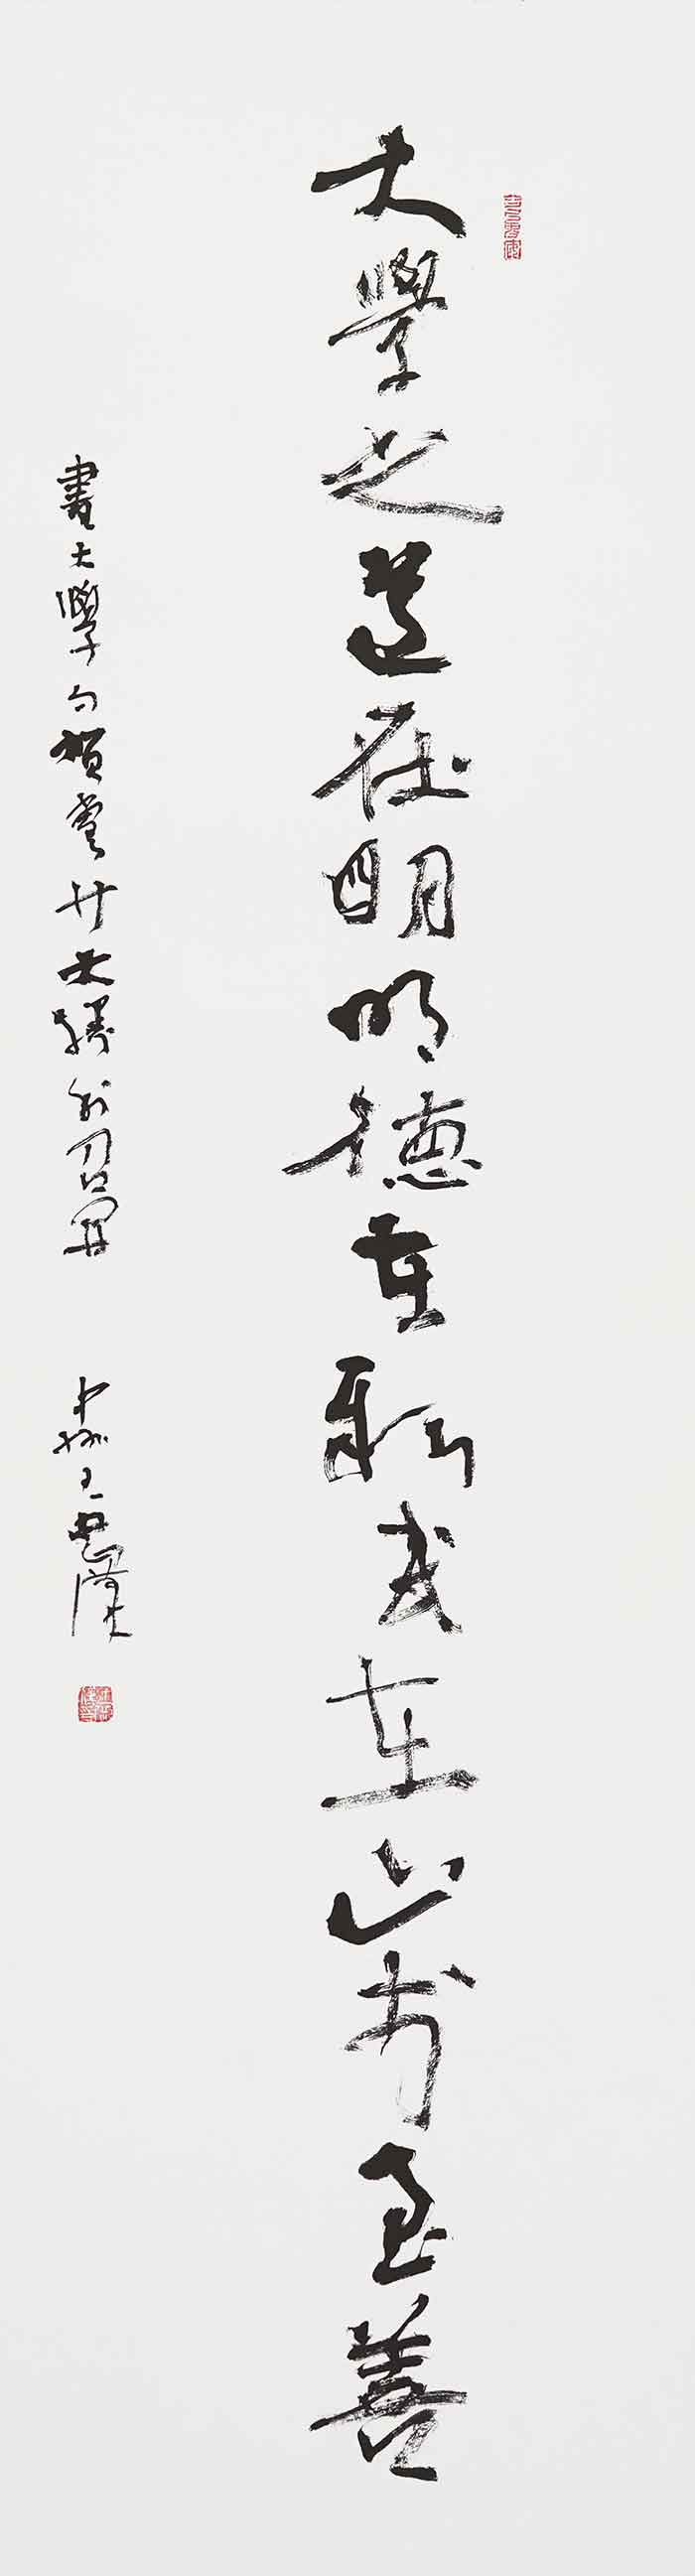 大學之道在明明德在親民在止於至善
書大學句賀黨廿大勝利召開